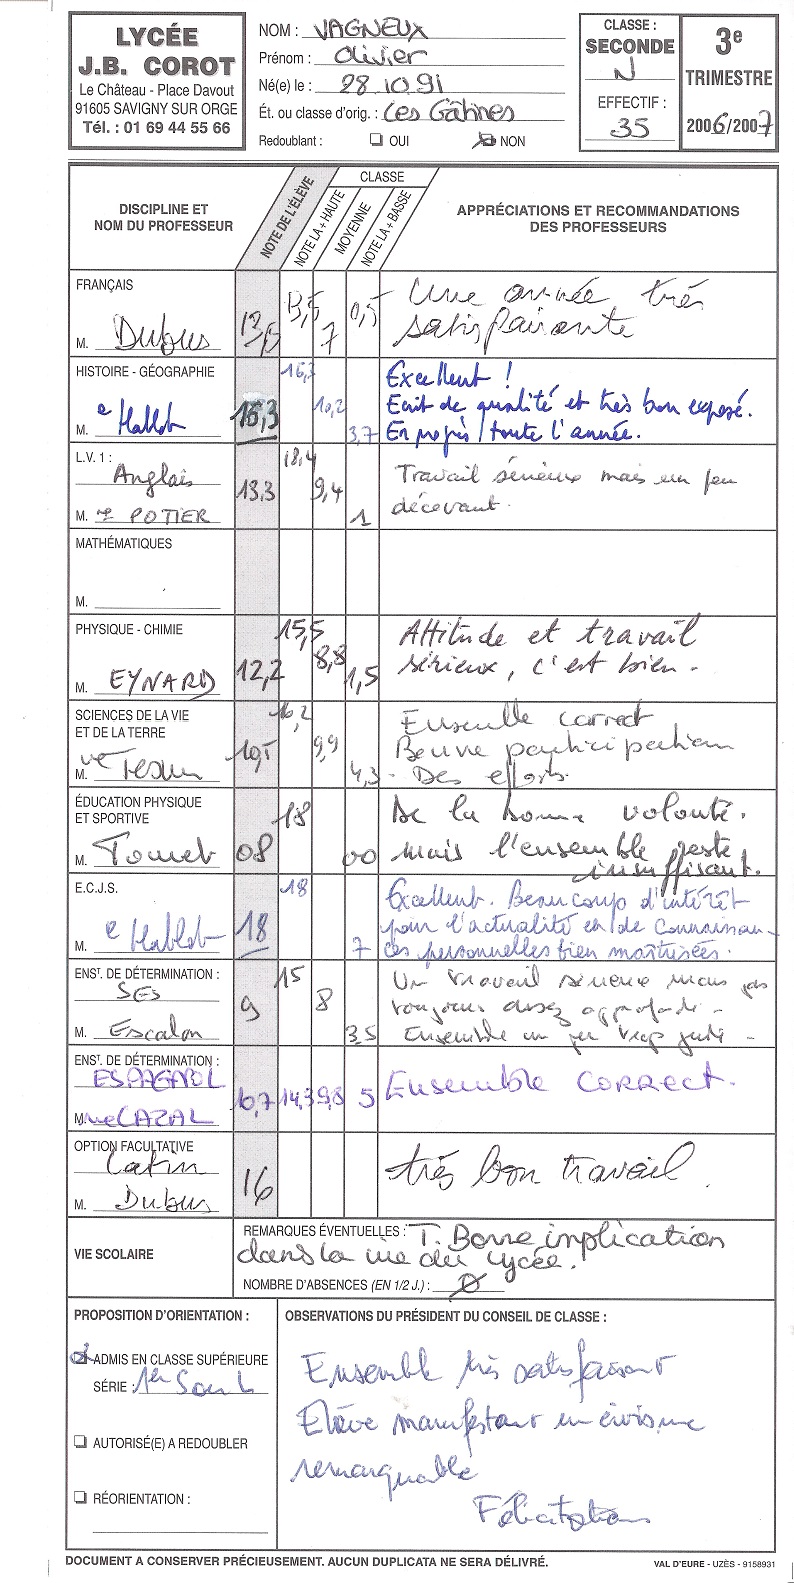 LYCÉE
J.B. COROT
Le Château - Place Davout
91605 SAVIGNY SUR ORGE
Tél. : 01 69 44 55 66
NOM : VAGNEUX
Prénom : Olivier
Né(e) le : 28.10.91
Ét. ou classe d'orig. : Les Gâtines
Redoublant : OUI NON
CLASSE :
SECONDE
N
EFFECTIF :
35
3e
TRIMESTRE
2006/2007
DISCIPLINE ET
NOM DU PROFESSEUR
NOTE DE L'ÉLÈVE
CLASSE
NOTE LA + HAUTE
MOYENNE
NOTE LA + BASSE
APPRÉCIATIONS ET RECOMMANDATIONS
DES PROFESSEURS
FRANÇAIS
M. Dubus
13,5 13,5 7 0,5
Une année très
satisfaisante
HISTOIRE - GÉOGRAPHIE
M. e Hablot
16,3 16,3 10,2 3,7
Excellent !
Ecrit de qualité et très bon exposé.
En progrès toute l'année.
L.V. 1 :
Anglais
M. me POTIER
13,3 18,4 9,4 1
Travail sérieux mais un peu
décevant.
MATHÉMATIQUES
M.
PHYSIQUE - CHIMIE
M. EYNARD
12,2 15,5 8,8 1,5
Attitude et travail
sérieux, c'est bien.
SCIENCES DE LA VIE
ET DE LA TERRE
M.
10,5 16,2 9,9 4,3
Ensemble correct
Bonne participation
- Des efforts.
ÉDUCATION PHYSIQUE
ET SPORTIVE
M. Toumeb
08 18 00
De la bonne volonté.
mais l'ensemble reste
insuffisant.
E.C.J.S.
M. e Hablot
18 18 7
Excellent. Beaucoup d'intérêt
pour l'actualité et de connaissan-
ces personnelles bien maîtrisées.
ENST. DE DÉTERMINATION :
SES
M. Escalon
9 15 8 3,5
Un travail sérieux mais pas
toujours assez approfondi -
Ensemble un peu trop juste -
ENST. DE DÉTERMINATION :
ESPAGNOL
M. me CAZAL
10,7 14,3 9,8 5
Ensemble correct.
OPTION FACULTATIVE
Latin
M. Dubus
16
très bon travail.
VIE SCOLAIRE
REMARQUES ÉVENTUELLES : T. Bonne implication
dans la vie du lycée.
NOMBRE D'ABSENCES (EN 1/2 J.) : Ø
PROPOSITION D'ORIENTATION :
ADMIS EN CLASSE SUPÉRIEURE
SÉRIE : 1er S ou L
AUTORISÉ(E) A REDOUBLER
RÉORIENTATION :
OBSERVATIONS DU PRÉSIDENT DU CONSEIL DE CLASSE :
Ensemble très satisfaisant
Elève manifestant un civisme
remarquable
Félicitations
DOCUMENT A CONSERVER PRÉCIEUSEMENT. AUCUN DUPLICATA NE SERA DÉLIVRÉ.
VAL D'EURE - UZÈS - 9158931